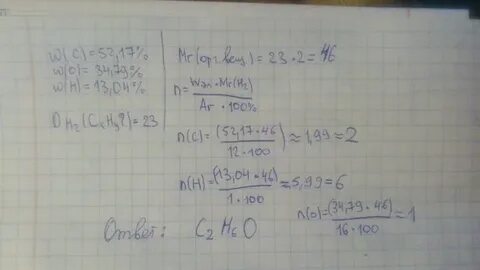 w(C)=52,17%
w(O)=34,79%
w(H)=13,04%
DH₂(CxHyO)=23
Mr(орг.вещ.)=23·2=46
n=Wэл·Mr(H₂)/Ar·100%
n(C)=(52,17·46)/12·100≈1,99=2
n(H)=(13,04·46)/1·100≈5,99=6
n(O)=(34,79·46)/16·100=1
Ответ: C₂H₆O